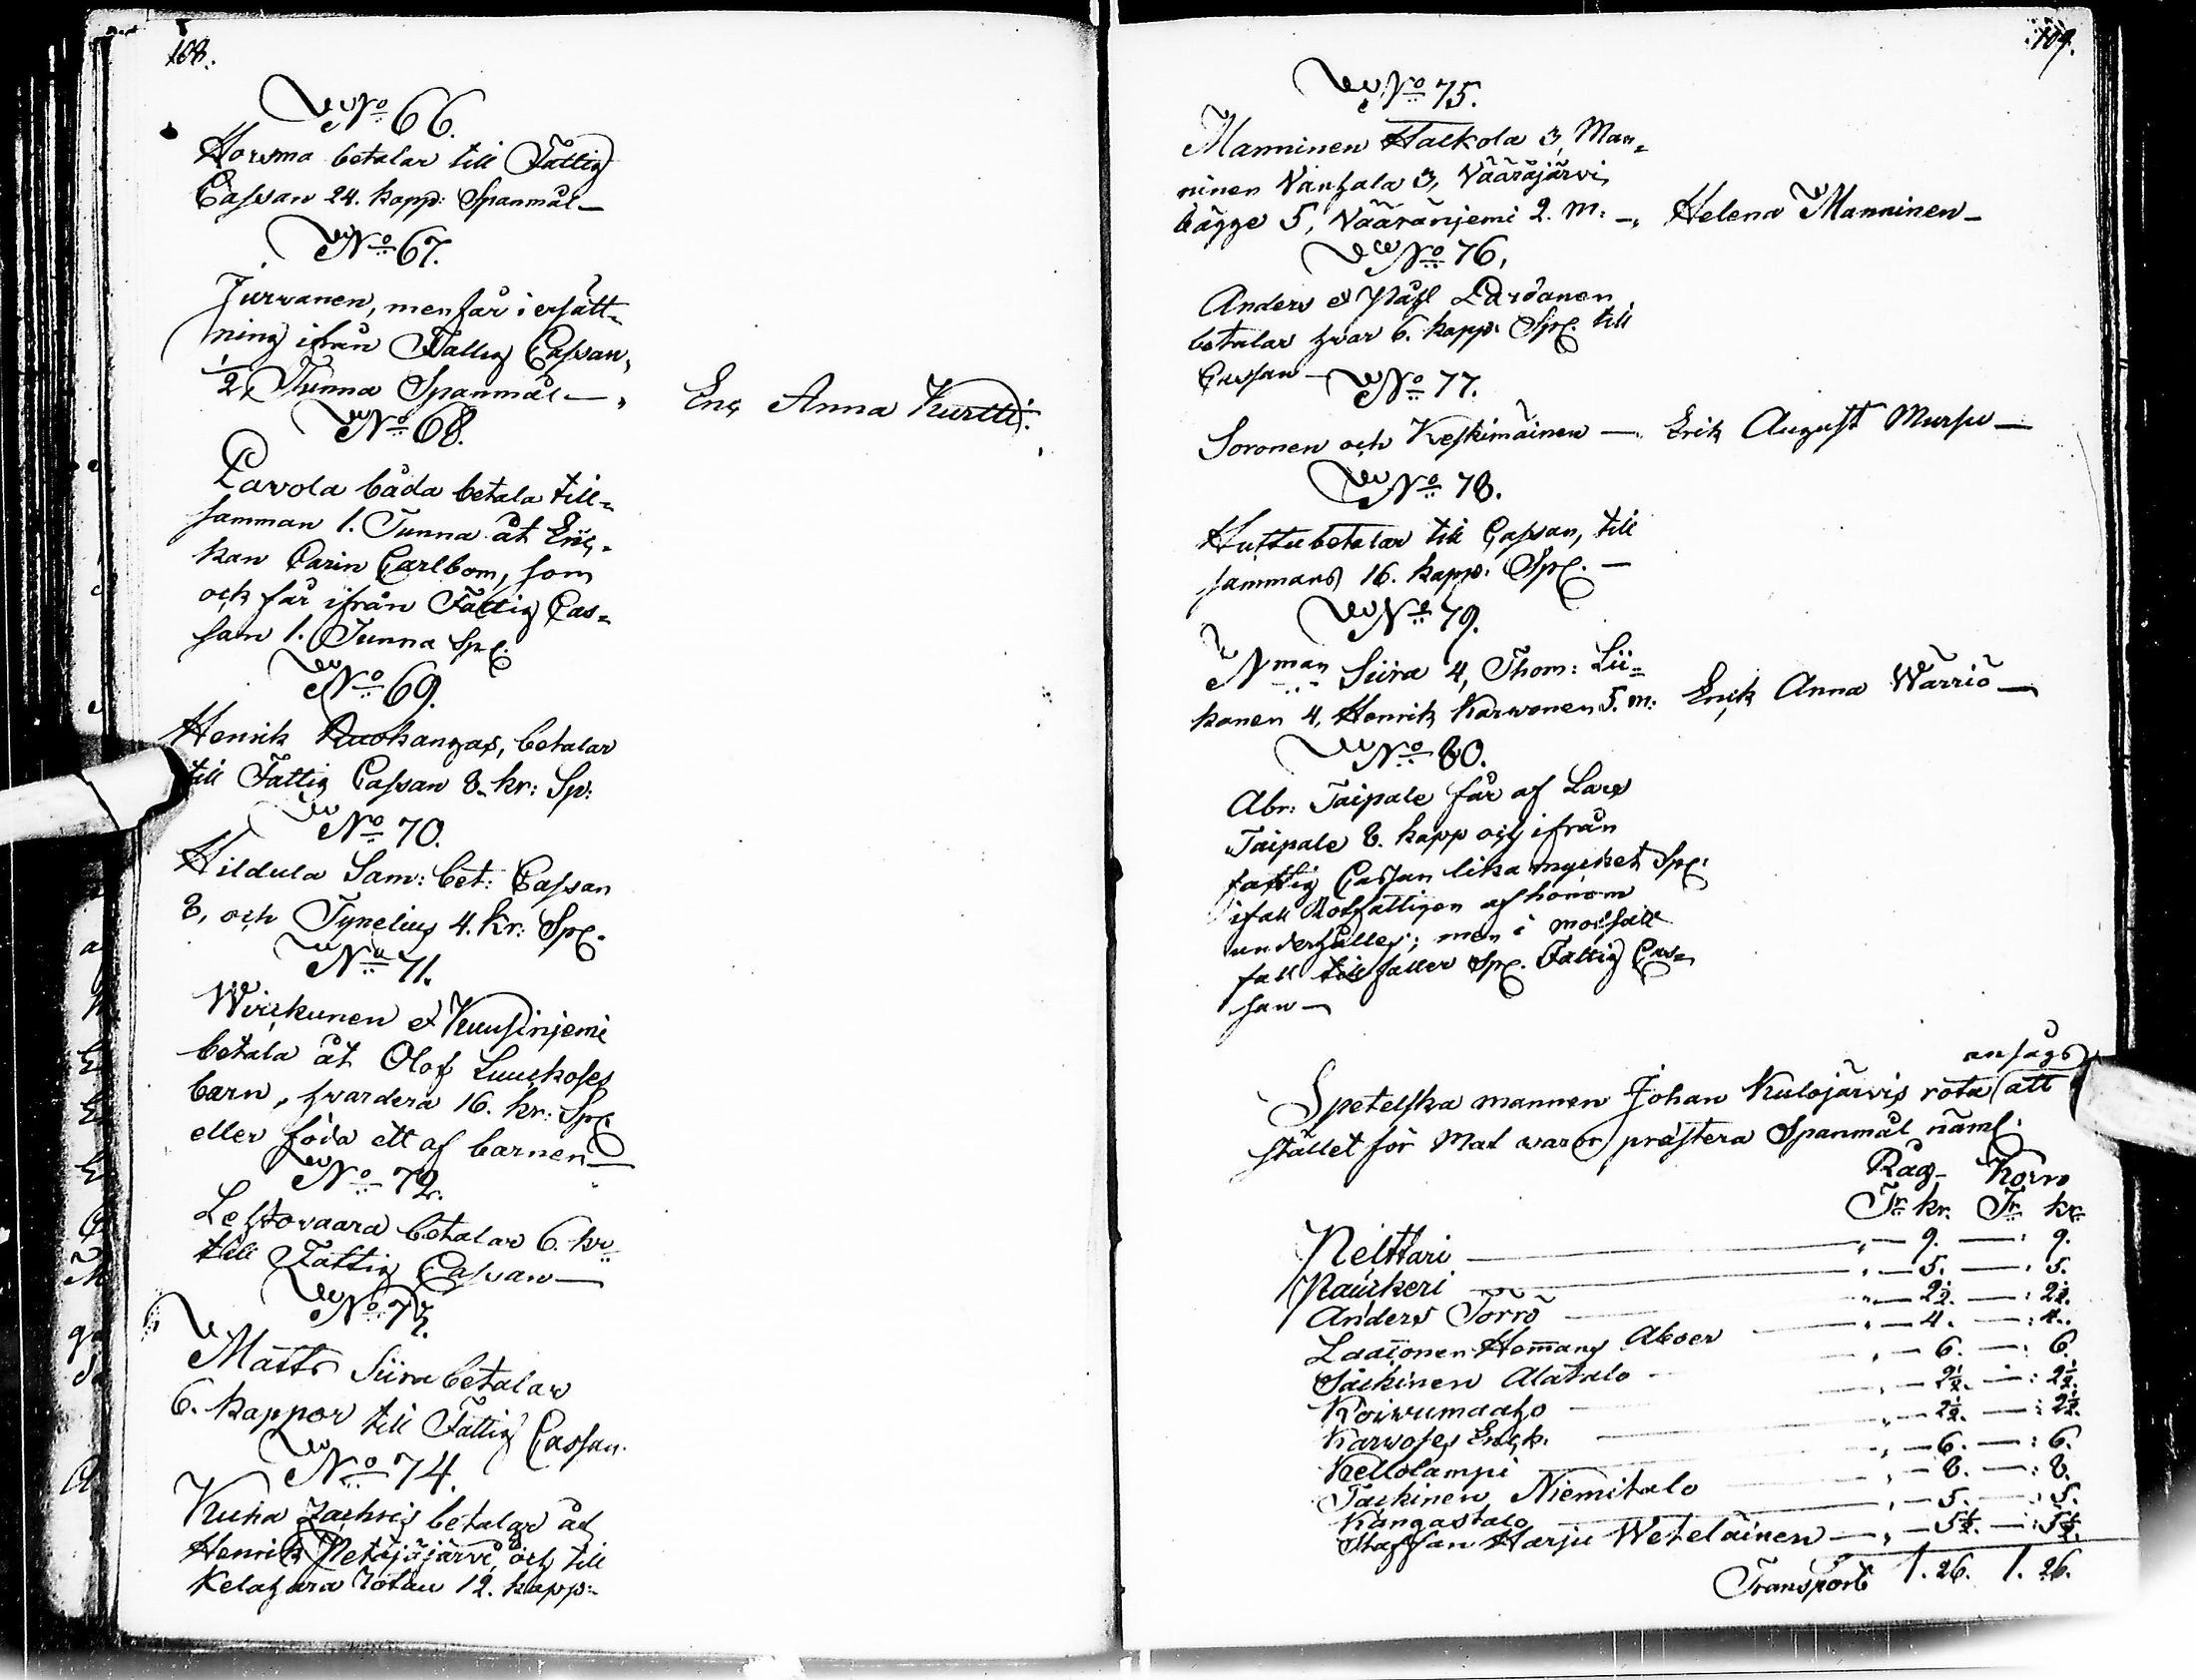 168.
No 66.
Horsma betalar till Fattig
Cassan 24. kapp: Spanmål—
No 67.
Jurvanen, men får i ersätt=
ning ifrån Fattig Cassan,
1/2 Tunna Spanmål— „ Enk Anna Kurtti.
No 68.
Pavola båda betala till=
samman 1. Tunna åt Enk=
kan Carin Carlbom, som
ock får ifrån Fattig Cas=
san 1. Tunna Spl.
No 69.
Henrik Ruokangas, betalar
till Fattig Cassan 8. kr: Sp:
No 70.
Hildula Sam: bet: Cassan
8, och Tynelius 4. kr: Spl.
No 71.
Wirkunen et Kuusinjemi
betala åt Olof Luukoses
barn, hvardera 16. kr: Spl
eller föda ett af barnen—
No 72.
Lehtovaara betalar 6. kr
till Fattig Cassan—
No 73.
Matts Siira betalar
6. kappor till Fattig Cassan.
No 74.
Kuha betalar åt
Henrik Petäjäjärvi, och till
Kelahara rotan 12. kapp:
109.
No 75.
Manninen Halkola 3, Man=
ninen Vanhala 3, Vääräjärvi
bägge 5, Vääränjemi 2. m: —„ Helena Manninen—
No 76,
Anders et Påhl Lardanen
betalar hvar 6. kapp: Spl. till
Cassan—
No 77.
Soronen och Keskimäinen —„ Erik August Mursu—
No 78.
Huttu betalar till Cassan, till
sammans 16. kapp: Spl. —
No 79.
Nman Siira 4, Thom: Lii=
kanen 4, Henrik Karvonen 5. m: Enk Anna Wärriö—
No 80.
Abr: Taipale får af Lars
Taipale 8. kapp och ifrån
fattig Cassan lika mycket Spl:
ifall Rotfattigen af honom
underhålles; men i motsatt
fall tillfaller Spl. Fattig Cas=
san—
ansågs
Spetelska mannen Johan Kulojärvis rota att
stället för Mat varor prästera Spanmål näml:
Råg— Korn
Tr kr. Tr kr:
Pelttari „— 9. —: 9.
Nauskeri „— 5. —: 5.
Anders Törrö „— 2 1/2. —: 2 1/2.
Laatonen Hemmans Aboer „— 4. —: 4.
Säkkinen Alatalo „— 6. —: 6.
Koivumaaho „— 2 1/2. —: 2 1/2.
Karvoses Enk. „— 2 1/2. —: 2 1/2.
Kellolampi „— 6. —: 6.
Säkkinen Niemitalo „— 8. —: 8.
Kangastalo „— 5. —: 5.
Staffan Harju Wetelainen— „— 5 1/2. —: 5 1/2.
Transport 1. 26. 1. 26.